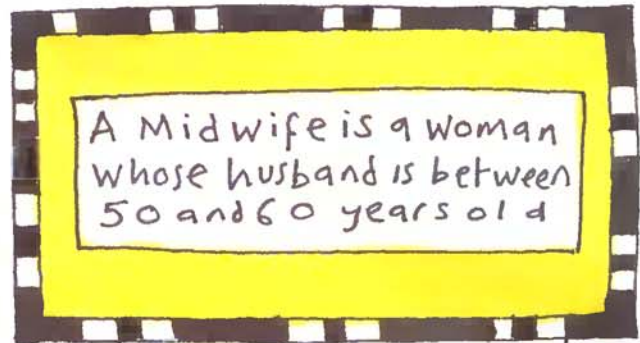 A Midwife is a woman
whose husband is between
50 and 60 years old